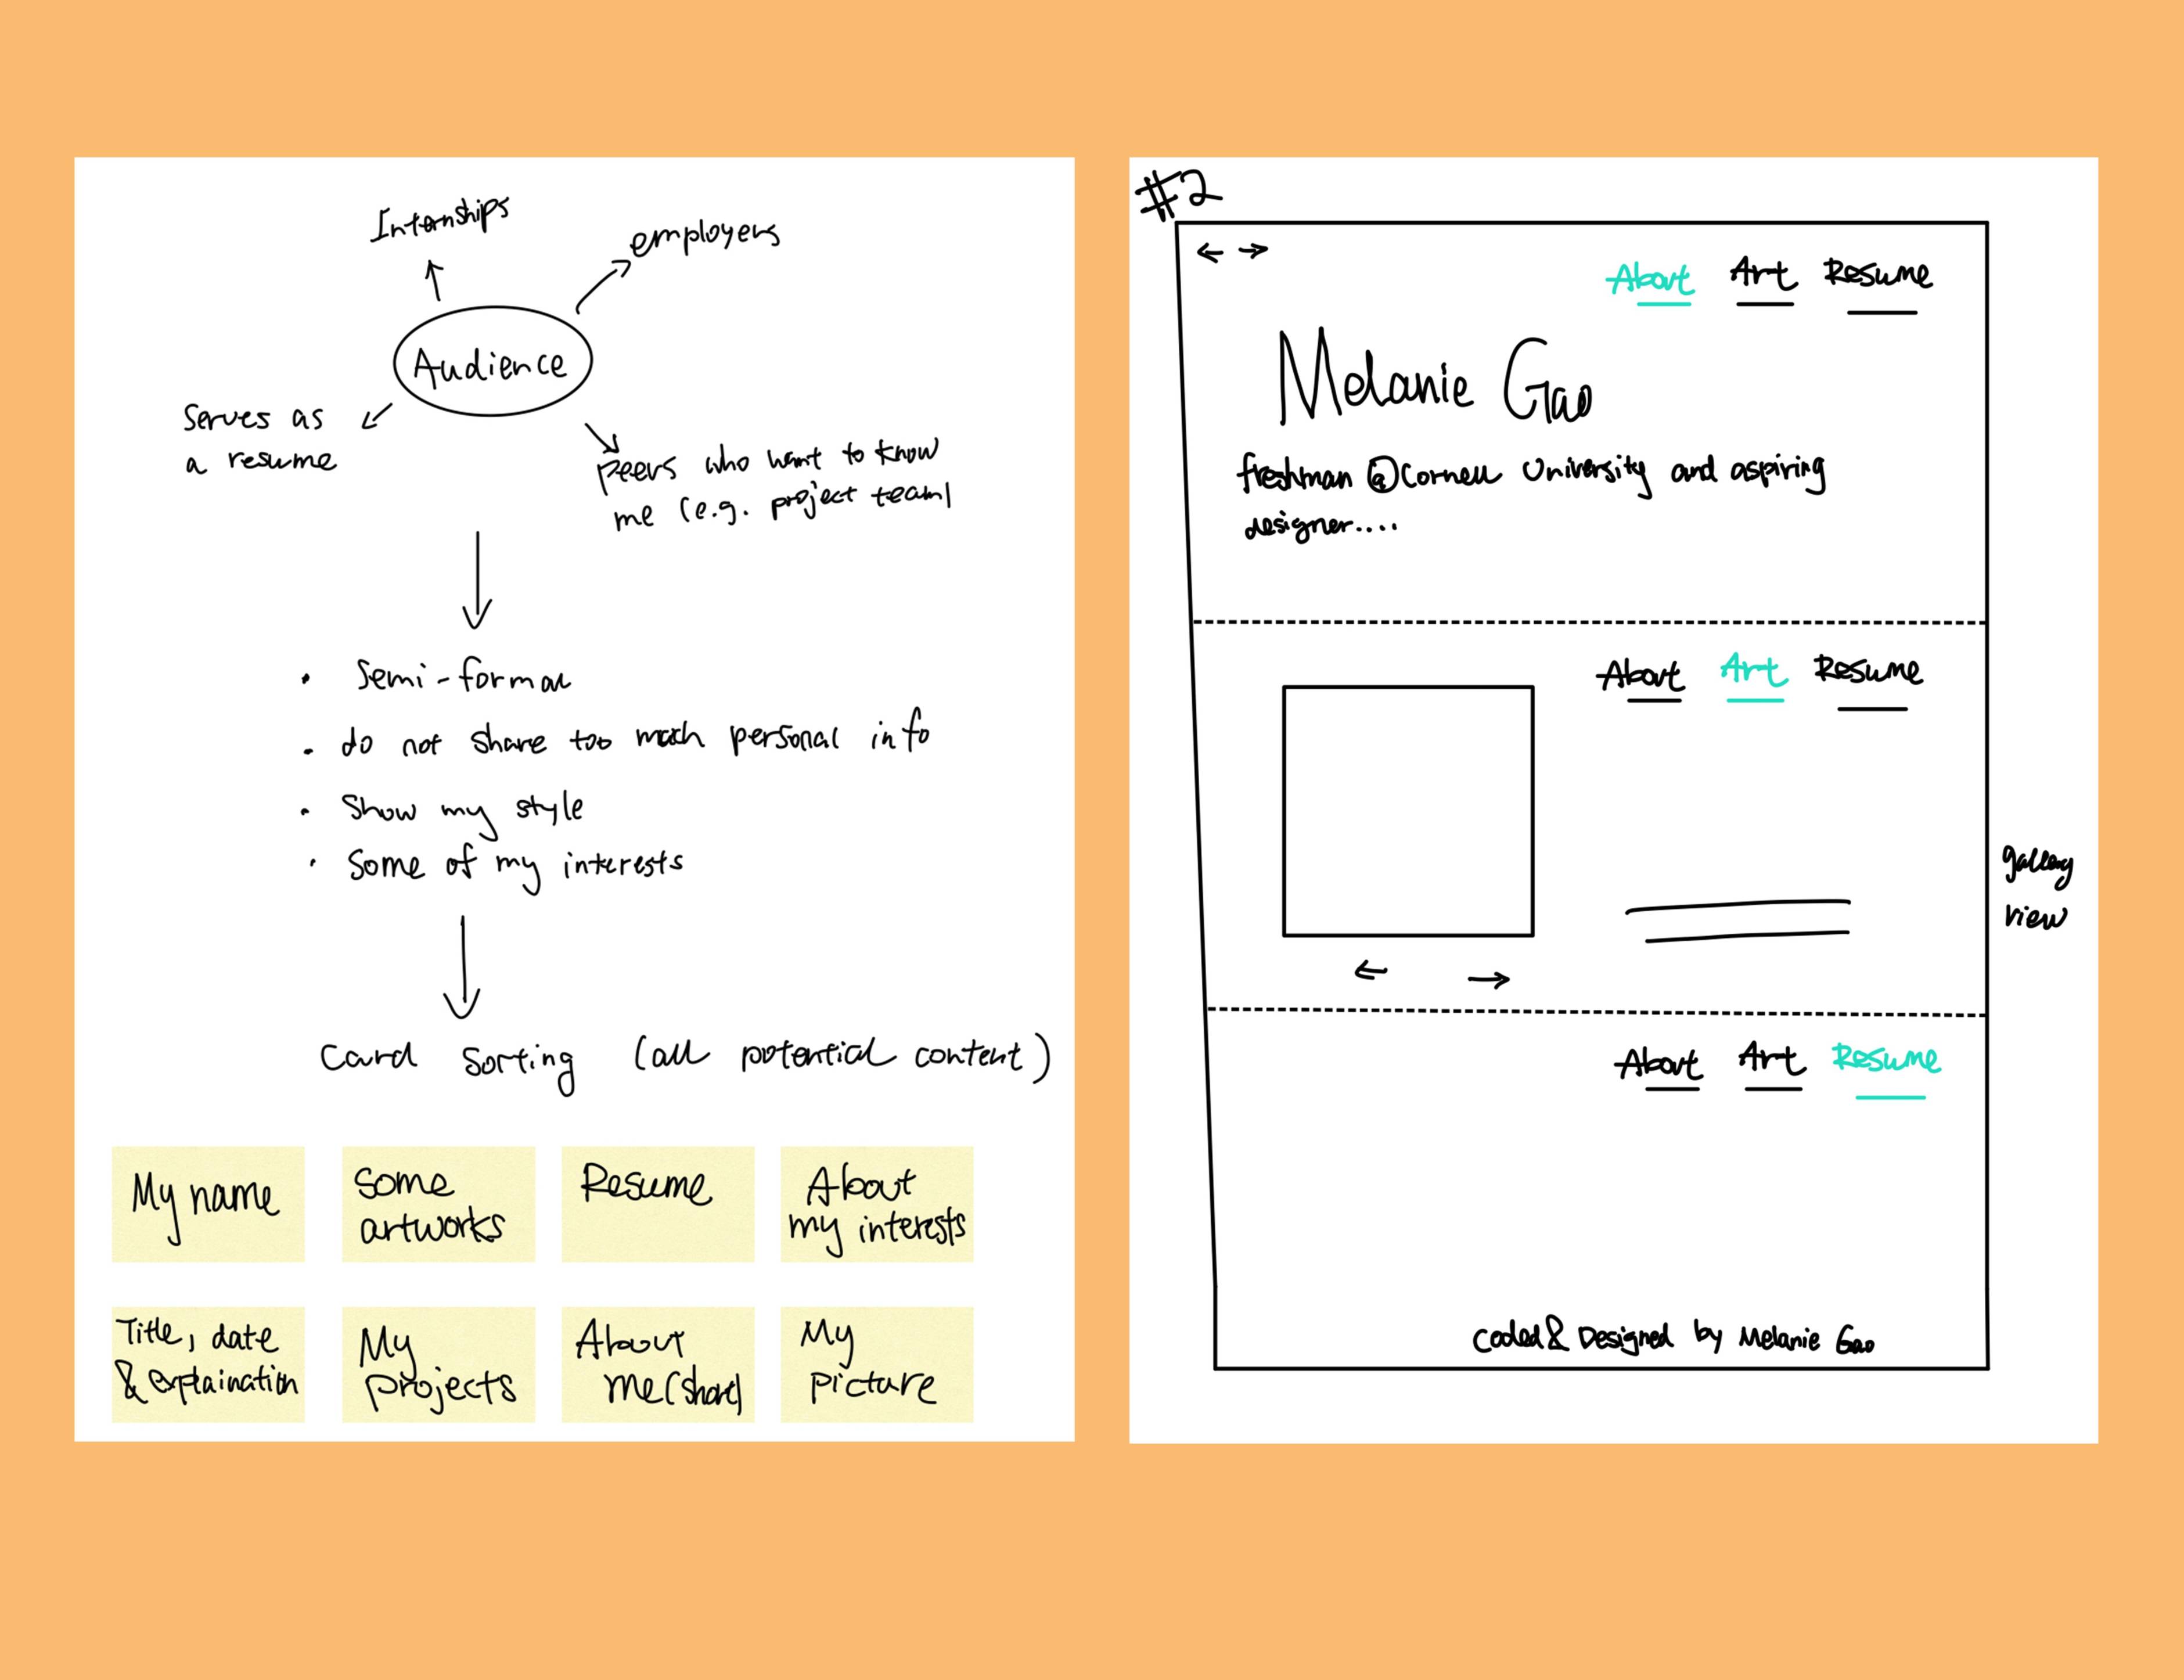 Internships
employers
Audience
Serves as
a resume
peers who want to know
me (e.g. project team)
• Semi-formal
• do not share too much personal info
• Show my style
• Some of my interests
Card Sorting (all potential content)
My name
Some
artworks
Resume
About
my interests
Title, date
& explaination
My
projects
About
me (short)
My
picture
#2
About Art Resume
Melanie Gao
freshman @Cornell University and aspiring
designer....
About Art Resume
gallery
view
About Art Resume
Coded & Designed by Melanie Gao